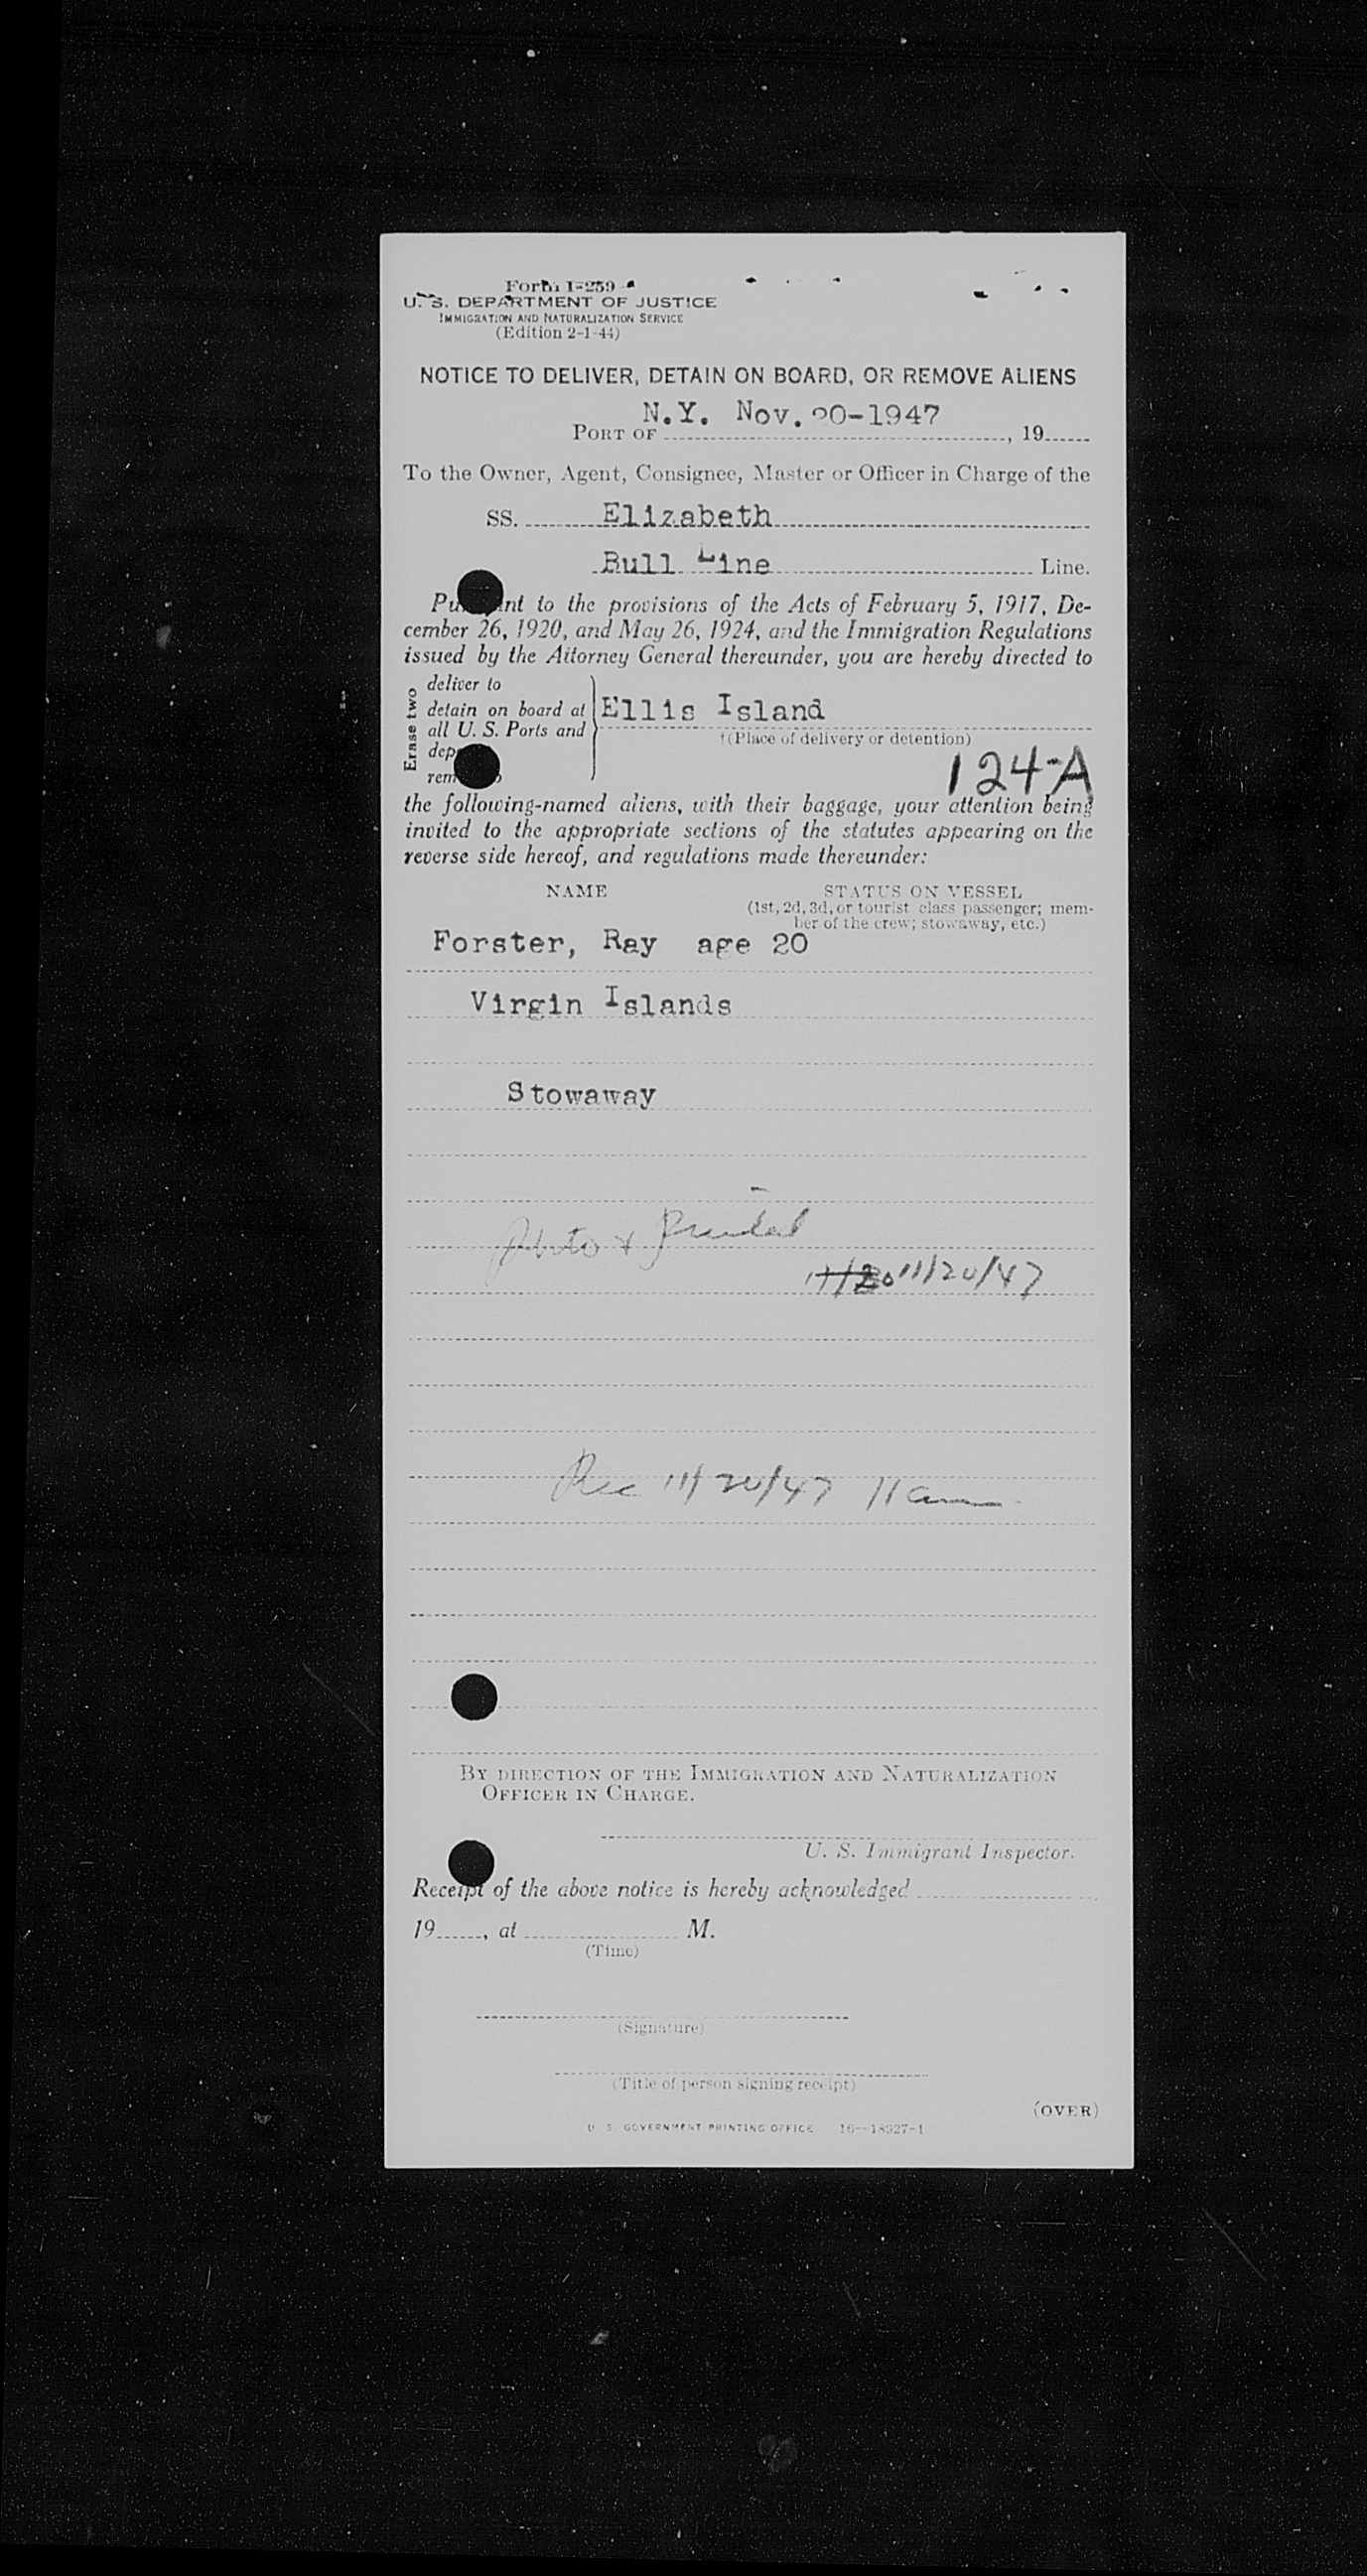 Form I-259
U. S. DEPARTMENT OF JUSTICE
IMMIGRATION AND NATURALIZATION SERVICE
(Edition 2-1-44)
NOTICE TO DELIVER, DETAIN ON BOARD, OR REMOVE ALIENS
N.Y. Nov. 20-1947
PORT OF , 19
To the Owner, Agent, Consignee, Master or Officer in Charge of the
SS. Elizabeth
Bull Line Line.
Pursuant to the provisions of the Acts of February 5, 1917, De-
cember 26, 1920, and May 26, 1924, and the Immigration Regulations
issued by the Attorney General thereunder, you are hereby directed to
Erase two
deliver to
detain on board at
all U. S. Ports and
Ellis Island
†(Place of delivery or detention)
124-A
the following-named aliens, with their baggage, your attention being
invited to the appropriate sections of the statutes appearing on the
reverse side hereof, and regulations made thereunder:
NAME STATUS ON VESSEL
(1st, 2d, 3d, or tourist class passenger; mem-
ber of the crew; stowaway, etc.)
Forster, Ray age 20
Virgin Islands
Stowaway
Photo & Printed
11/20 11/20/47
Rec 11/20/47 11 am
BY DIRECTION OF THE IMMIGRATION AND NATURALIZATION
OFFICER IN CHARGE.
U. S. Immigrant Inspector.
Receipt of the above notice is hereby acknowledged
19 , at M.
(Time)
(Signature)
(Title of person signing receipt)
(OVER)
U. S. GOVERNMENT PRINTING OFFICE 16—18927-1